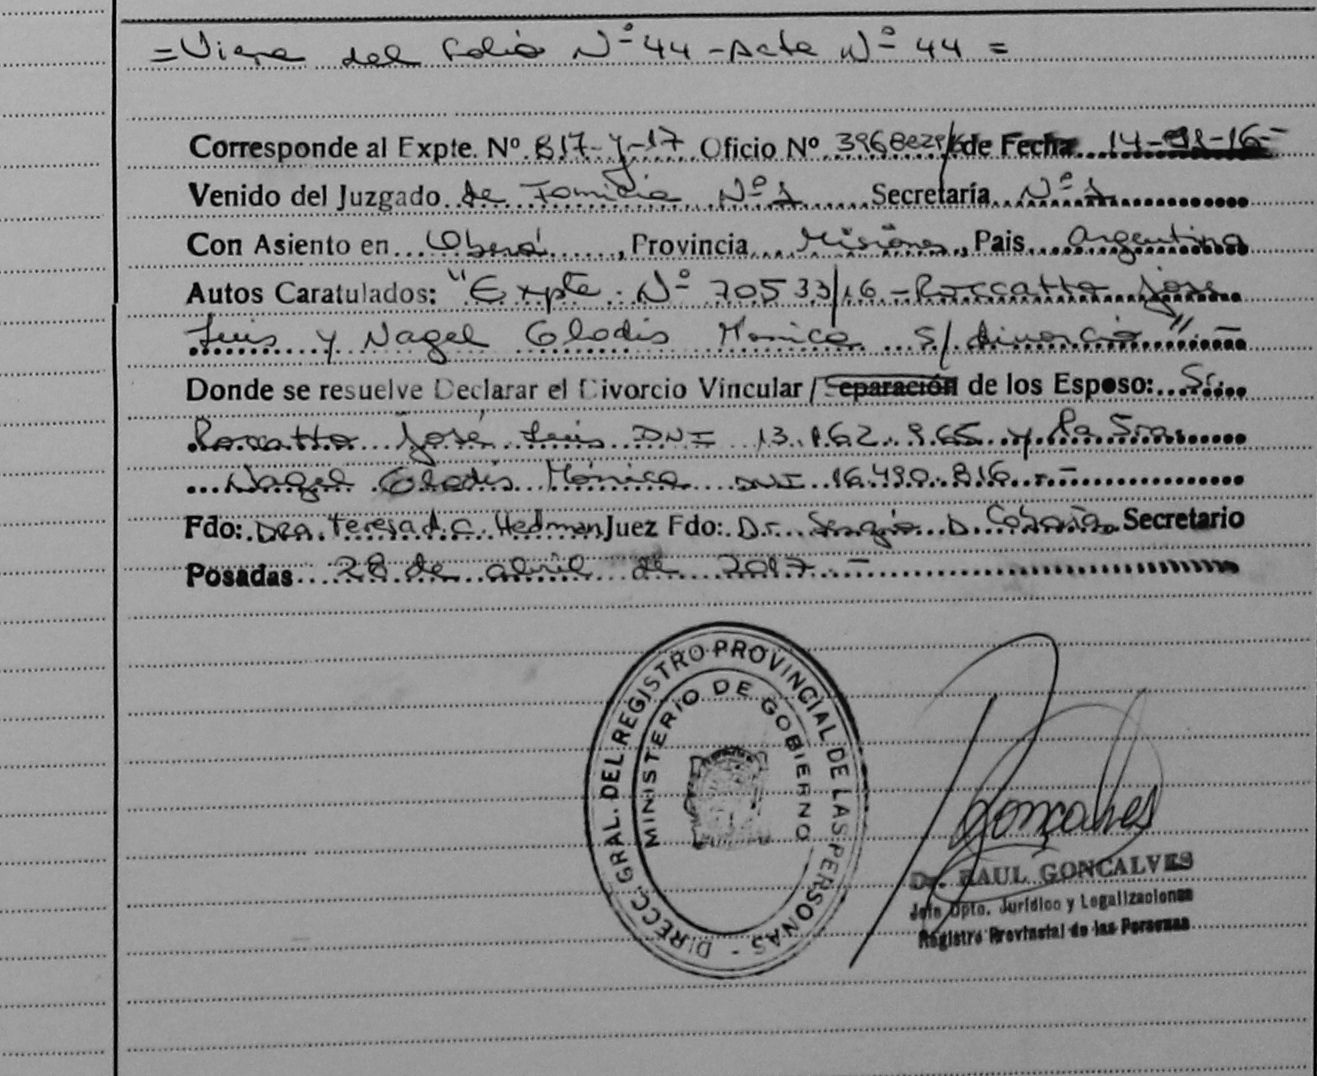 = Viene del Folio Nº 44 - Acta Nº 44 =
Corresponde al Expte. Nº 817-Y-17 Oficio Nº de Fecha 14- -16-
Venido del Juzgado de Familia Nº 1 Secretaría Nº 1
Con Asiento en Oberá, Provincia Misiones, Pais Argentina
Autos Caratulados: "Expte. Nº 70533/16 - Roccatto José
Luis y Nagel Gladis Monica s/ divorcio". -
Donde se resuelve Declarar el Divorcio Vincular / Separación de los Esposo: Sr.
Roccatto José Luis DNI 13. 965 y la Sra.
Nagel Gladis Mónica DNI 16.490.816. -
Fdo: Dra. Teresa A. C. Hedman Juez Fdo: Dr. Sergio D. Secretario
Posadas 28 de abril de 2017. -
DIRECC. GRAL. DEL REGISTRO PROVINCIAL DE LAS PERSONAS -
MINISTERIO DE GOBIERNO
Goncalves
Dr. RAUL GONCALVES
Jefe Dpto. Jurídico y Legalizaciones
Registro Provincial de las Personas